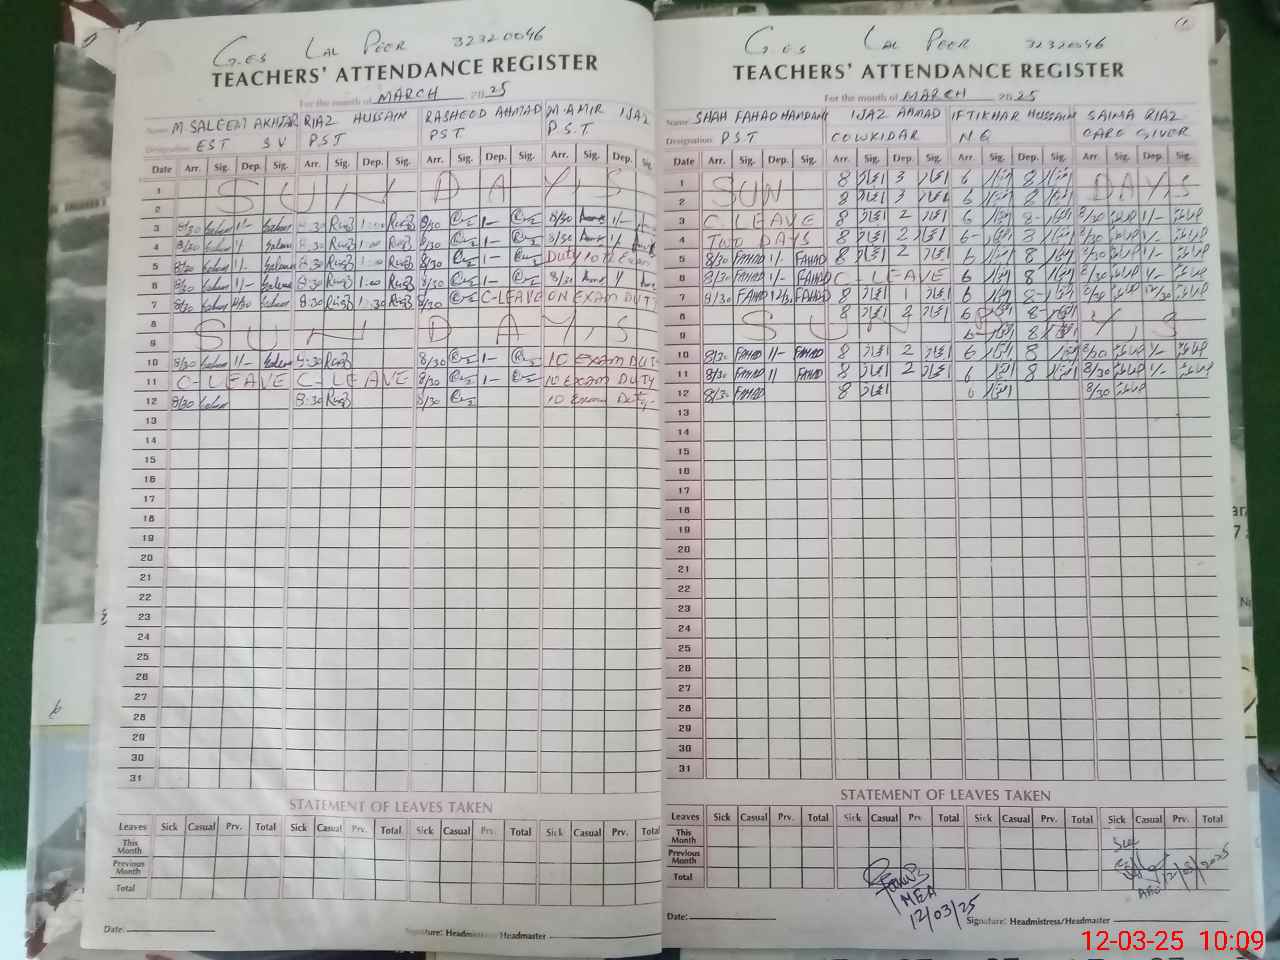 G.es LAL PEER 32320046
TEACHERS' ATTENDANCE REGISTER
For the month of MARCH 2025
Name M SALEEM AKHTAR RIAZ HUSSAIN RASHEED AHMAD M.AMIR IJAZ
Designation EST SV PST PST P.S.T
Date Arr. Sig. Dep. Sig. Arr. Sig. Dep. Sig. Arr. Sig. Dep. Sig. Arr. Sig. Dep. Sig.
1 SUN DAY,S
2
3 8/30 1/- 8:30 1:00 8/30 1- 8/30 1/-
4 8/30 1/ 8:30 1:00 8/30 1- 8/30 1/
5 8/30 1/- 8:30 1:00 8/30 1- Duty 10th Exam
6 8/30 1/- 8:30 1:00 8/30 1- 8/30
7 8/30 12/30 8:30 1:30 8/30 C-LEAVE ON EXAM DUTY
8 SUN DAY,S
9
10 8/30 1/- 8:30 8/30 1- 10 EXAM DUTY
11 C-LEAVE C-LEAVE 8/30 1- 10 EXAM DUTY
12 8/30 8:30 8/30 10 Exam Duty
13
14
15
16
17
18
19
20
21
22
23
24
25
26
27
28
29
30
31
STATEMENT OF LEAVES TAKEN
Leaves Sick Casual Prv. Total Sick Casual Prv. Total Sick Casual Prv. Total Sick Casual Prv. Total
This Month
Previous Month
Total
Date:
Signature: Headmistress/Headmaster
G.es LAL PEER 32320046
TEACHERS' ATTENDANCE REGISTER
For the month of MARCH 2025
Name SHAH FAHAD HAMDANI IJAZ AHMAD IFTIKHAR HUSSAIN SAIMA RIAZ
Designation P.S.T COWKIDAR N.Q CARE GIVER
Date Arr. Sig. Dep. Sig. Arr. Sig. Dep. Sig. Arr. Sig. Dep. Sig. Arr. Sig. Dep. Sig.
1 SUN 8 3 6 8 DAY,S
2 8 3 6 8
3 C LEAVE 8 2 6 8- 8/30 1/-
4 TWO DAYS 8 2 6- 8 8/30 1/-
5 8/30 FAHAD 1/- FAHAD 8 2 6 8 8/30 1/-
6 8/30 FAHAD 1/- FAHAD C-LEAVE 6 8 8/30 1/-
7 8/30 FAHAD 12/30 FAHAD 8 1 6 8- 8/30 12/30
8 SUN 8 2 6 8- Y,S
9 6- 8
10 8/30 FAHAD 1/- FAHAD 8 2 6 8 8/30 1/-
11 8/30 FAHAD 1/ FAHAD 8 2 6 8 8/30 1/-
12 8/30 FAHAD 8 6 8/30
13
14
15
16
17
18
19
20
21
22
23
24
25
26
27
28
29
30
31
STATEMENT OF LEAVES TAKEN
Leaves Sick Casual Prv. Total Sick Casual Prv. Total Sick Casual Prv. Total Sick Casual Prv. Total
This Month
Previous Month
Total
MEA
12/03/25
12/03/2025
Date:
Signature: Headmistress/Headmaster
12-03-25 10:09